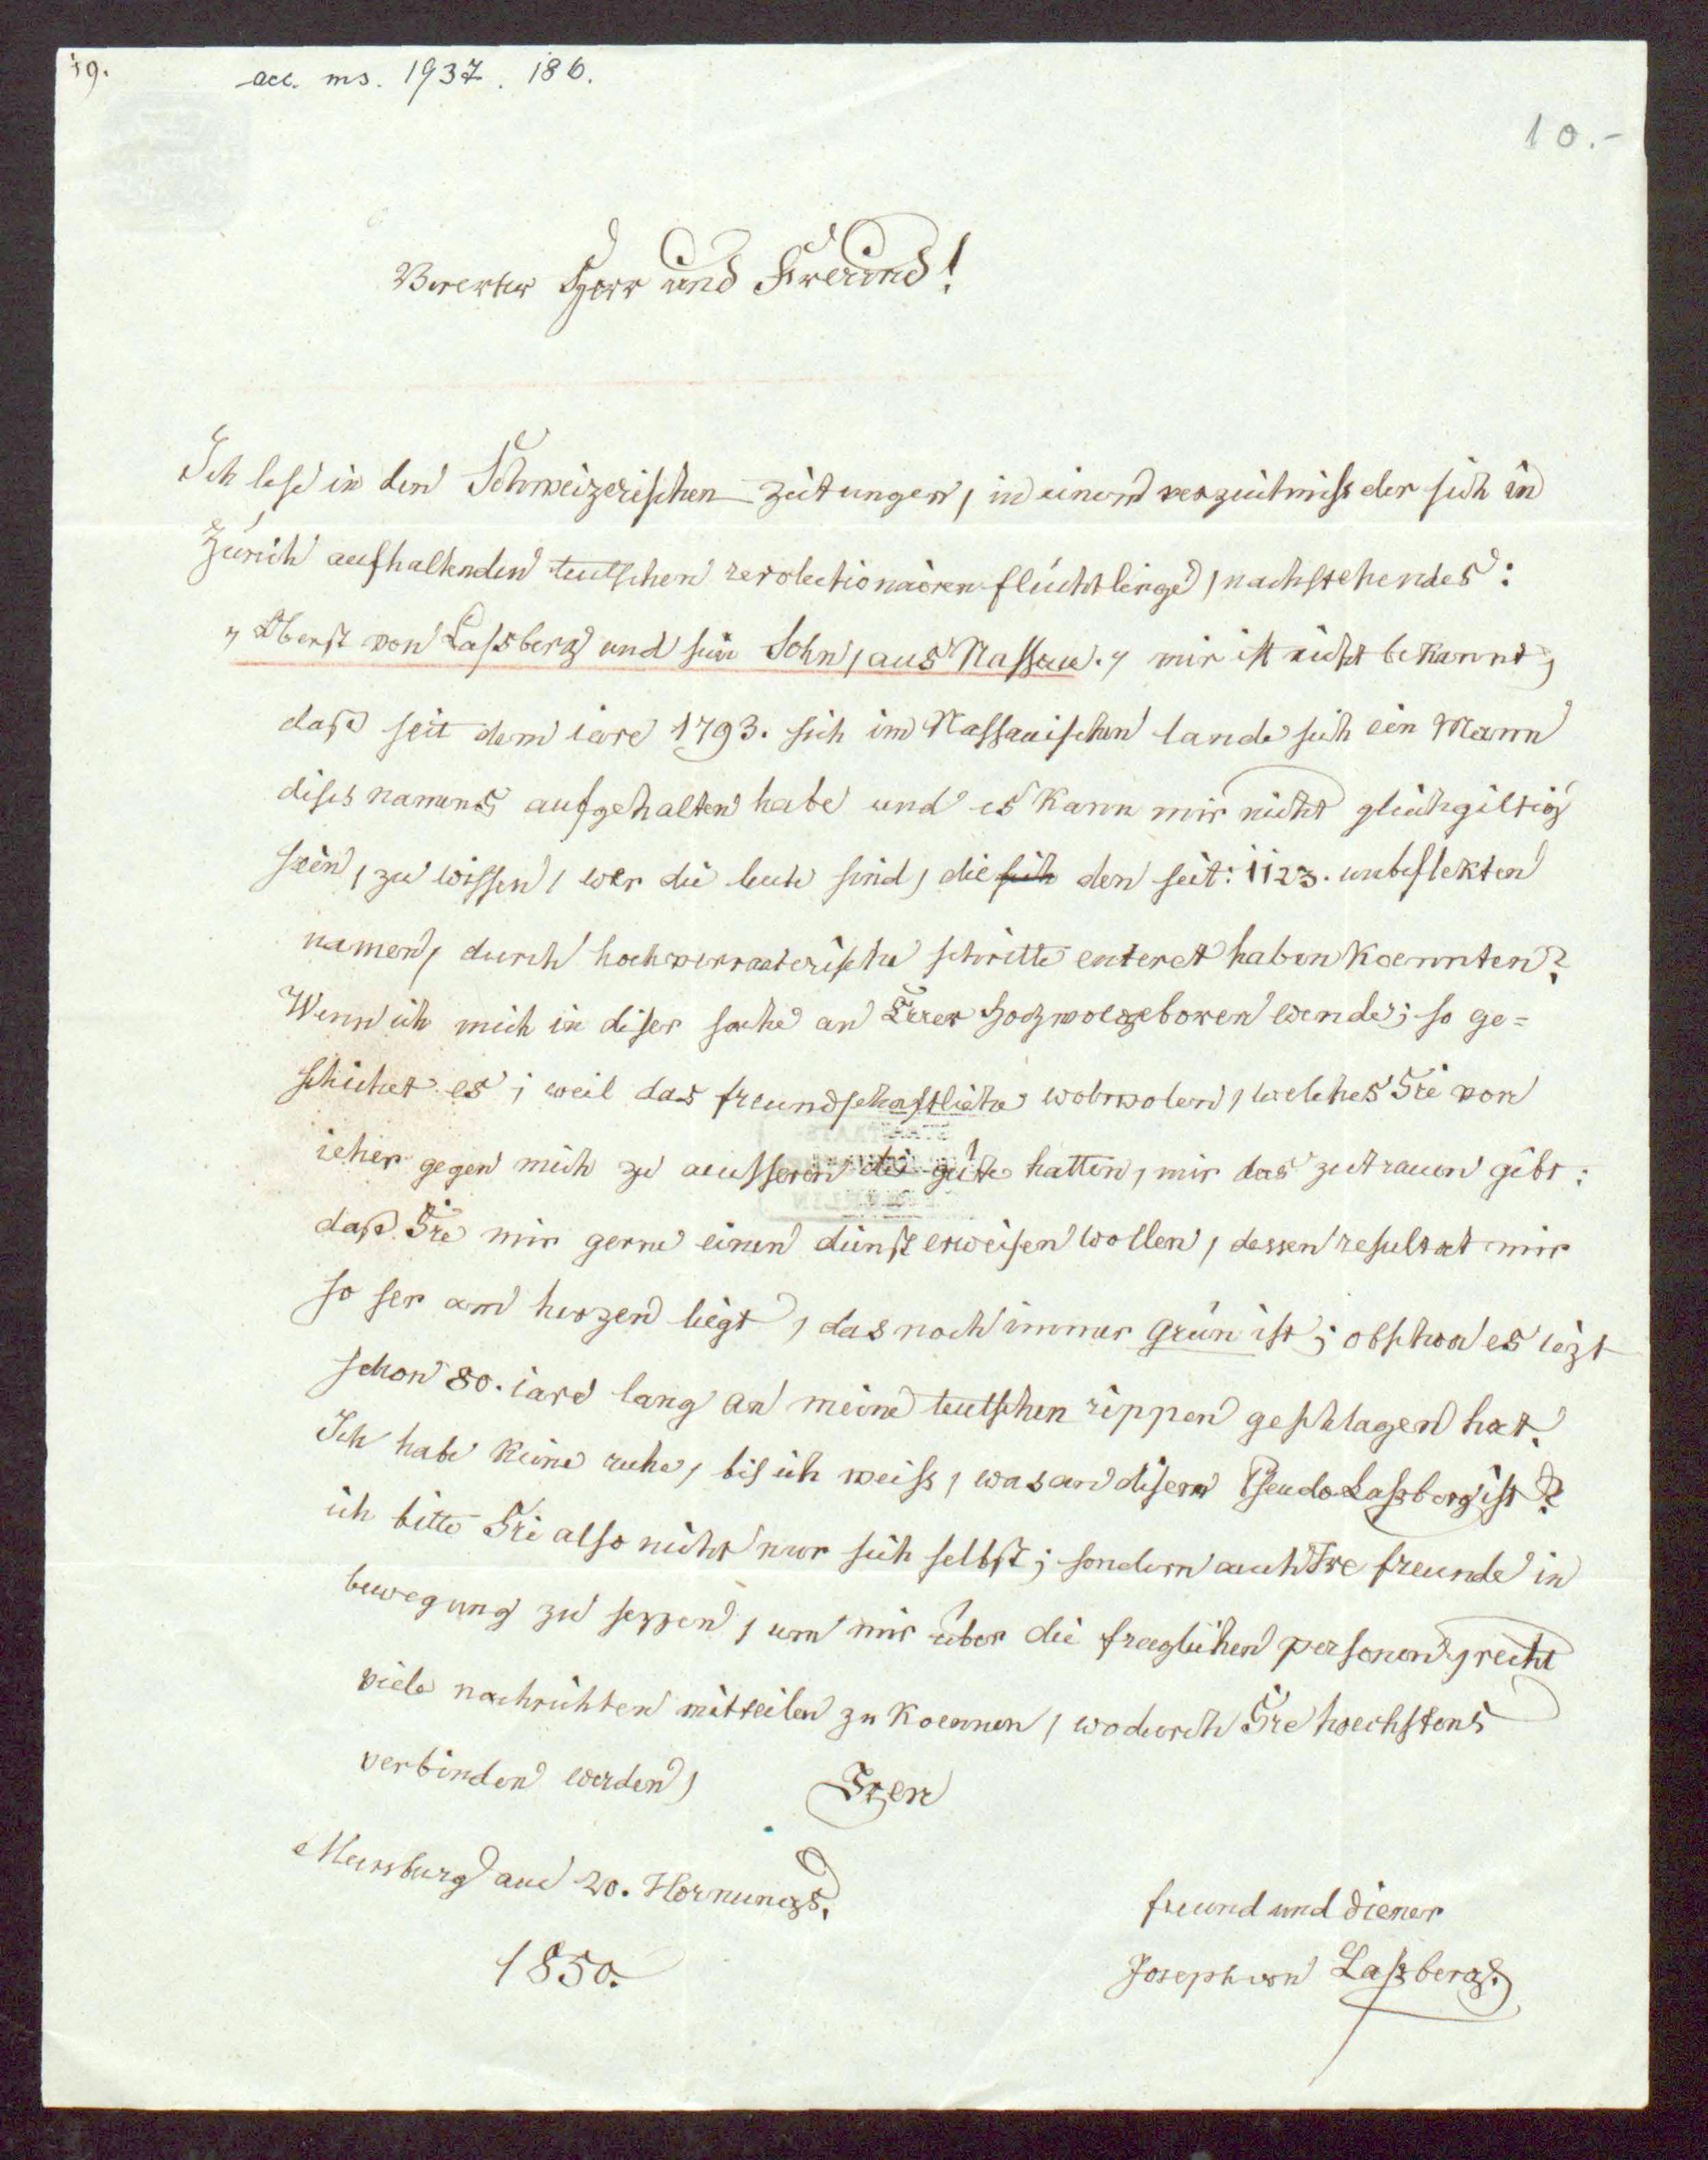 19.
acc. ms. 1937. 186.
10.-
Vererter Herr und Freund!
Ich lese in den Schweizerischen zeitungen, in einem verzeichniss der sich in
Zürich aufhaltenden teutschen revolectionairen flüchtlinge, nachstehendes:
„Oberst von Laſsberg und sein Sohn, aus Nassau.„ mir ist nicht bekannt,
daß seit dem iare 1793. sich im Nassauischen lande sich ein Mann
dises namens aufgehalten habe und es kann mir nicht gleichgiltig
sein, zu wissen, wer die leute sind, die sich den seit: 1123. unbeflekten
namen, durch hochverraeterische schritte enteret haben koennten?
Wenn ich mich in diser sache an Euer Hochwolgeboren wende; so ge=
schichet es; weil das freundschaftliche wolwolen, welches Sie von
ieher gegen mich zu aeusseren die güte hatten, mir das zutrauen gibt:
daß Sie mir gerne einen dienst erweisen wollen, dessen resultat mir
so ser am herzen liegt, das noch immer grün ist; obschon es iezt
schon 80. iare lang an meine teutschen rippen geschlagen hat.
Ich habe keine ruhe, bis ich weiss, was an disem Pseudo Laſsberg ist?
ich bitte Sie also nicht nur sich selbst; sondern auch Ire freunde in
bewegung zu sezzen, um mir über die fraglichen personen, recht
viele nachrichten mitteilen zu koennen, wodurch Sie hoechstens
verbinden werden,
Iren
Meersburg am 20. Hornungs.
1850.
freund und diener
Joseph von Laſsberg.